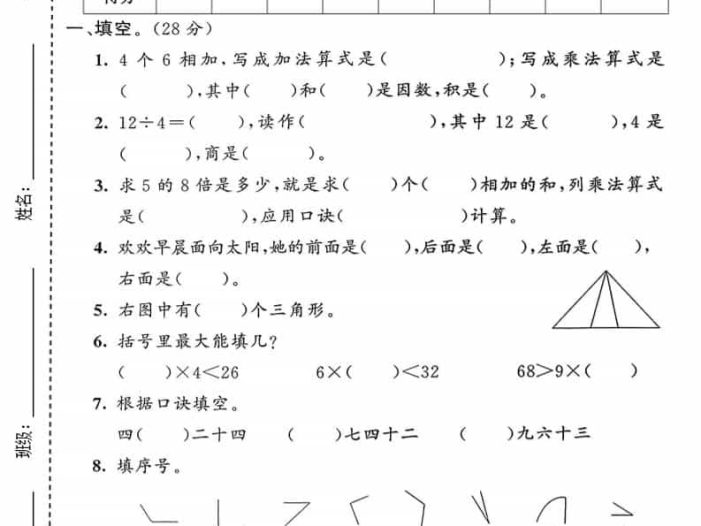 一、填空。(28 分)
1. 4 个 6 相加,写成加法算式是(　　　　　　);写成乘法算式是
(　　　),其中(　　)和(　　)是因数,积是(　　)。
2. 12÷4=(　　),读作(　　　　　　),其中 12 是(　　　),4 是
(　　　),商是(　　　)。
3. 求 5 的 8 倍是多少,就是求(　　)个(　　)相加的和,列乘法算式
是(　　　　　),应用口诀(　　　　　　)计算。
4. 欢欢早晨面向太阳,她的前面是(　　),后面是(　　),左面是(　　),
右面是(　　)。
5. 右图中有(　　)个三角形。
6. 括号里最大能填几?
(　　)×4<26　　6×(　　)<32　　68>9×(　　)
7. 根据口诀填空。
四(　　)二十四　　(　　)七四十二　　(　　)九六十三
8. 填序号。
姓名:
班级: